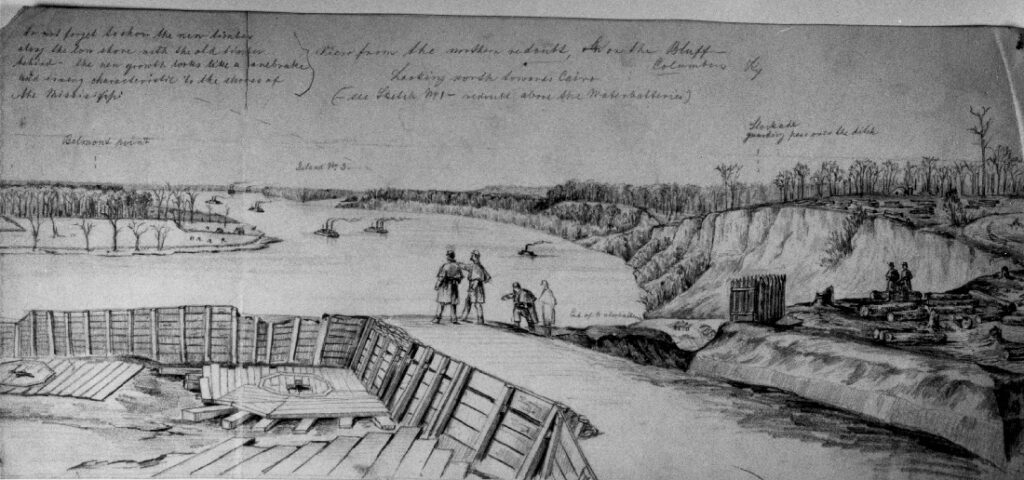 Do not forget to show the new timber
along the low shore with the old timber
behind - the new growth looks like a canebrake
and is very characteristic to the shores of
the Mississippi
View from the northern redoubt, on the Bluff
Columbus Ky
Looking north towards Cairo
(- see Sketch No 1 - redoubt above the Waterbatteries)
Belmont point
Island No 3.
Stockade
guarding pass over the ditch